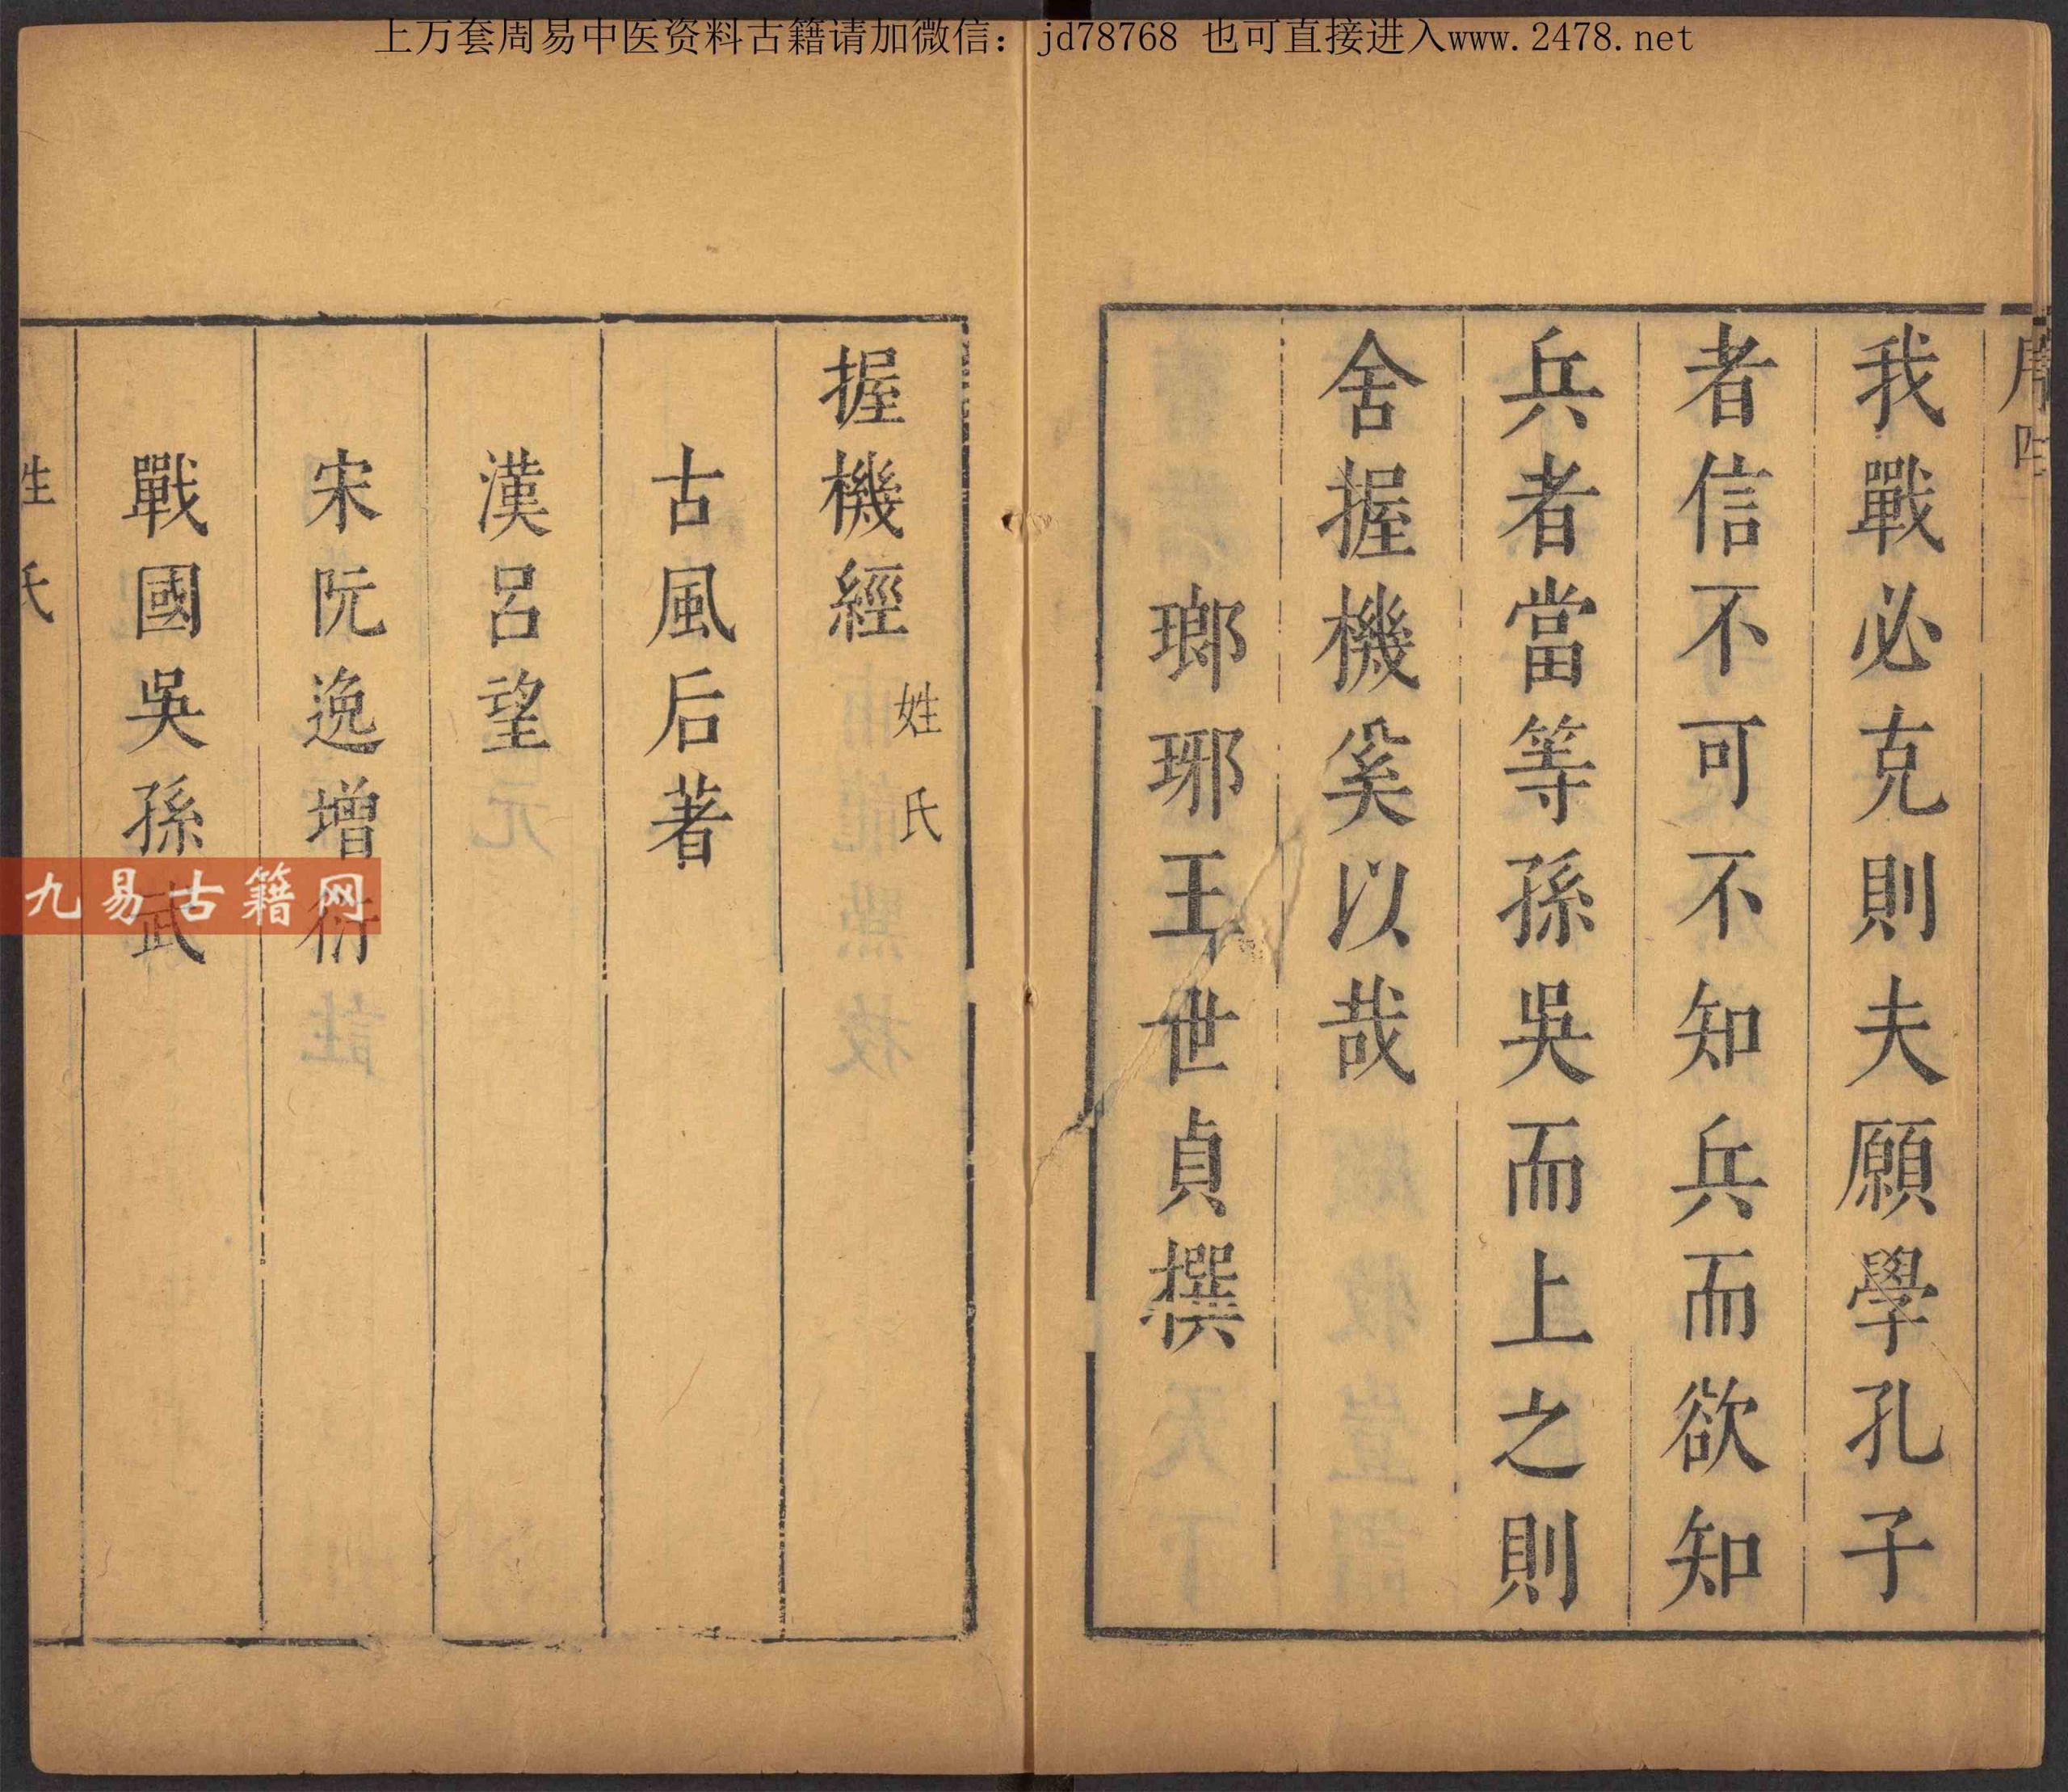 上万套周易中医资料古籍请加微信：jd78768 也可直接进入www.2478.net
我戰必克則夫願學孔子
者信不可不知兵而欲知
兵者當等孫吳而上之則
舍握機奚以哉
瑯琊王世貞撰
握機經
姓氏
古風后著
漢呂望
宋阮逸增衍
戰國吳孫武
姓氏
九易古籍网